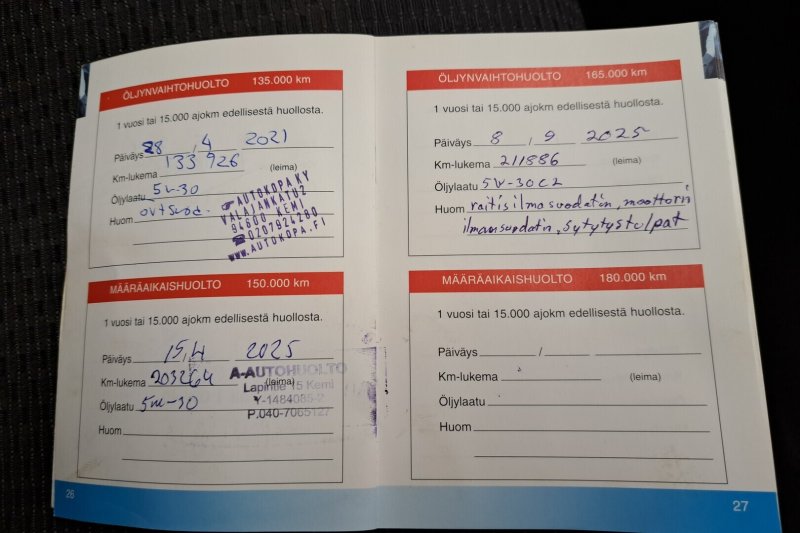 ÖLJYNVAIHTOHUOLTO 135.000 km
1 vuosi tai 15.000 ajokm edellisestä huollosta.
Päiväys 28 / 4 2021
Km-lukema 133 926 (leima)
Öljylaatu 5w-30
Huom
AUTOKOPA KY
VALAJANKATU 2
94600 KEMI
☎0207924280
www.AUTOKOPA.FI
MÄÄRÄAIKAISHUOLTO 150.000 km
1 vuosi tai 15.000 ajokm edellisestä huollosta.
Päiväys 15/4 2025
Km-lukema 203264 (leima)
Öljylaatu 5w-30
Huom
A-AUTOHUOLTO
Lapintie 15 Kemi
P.040-7065127
26
ÖLJYNVAIHTOHUOLTO 165.000 km
1 vuosi tai 15.000 ajokm edellisestä huollosta.
Päiväys 8 / 9 2025
Km-lukema 211886 (leima)
Öljylaatu 5W-30C2
Huom raitisilmasuodatin, moottorin
ilmansuodatin, sytytystulpat
MÄÄRÄAIKAISHUOLTO 180.000 km
1 vuosi tai 15.000 ajokm edellisestä huollosta.
Päiväys /
Km-lukema (leima)
Öljylaatu
Huom
27